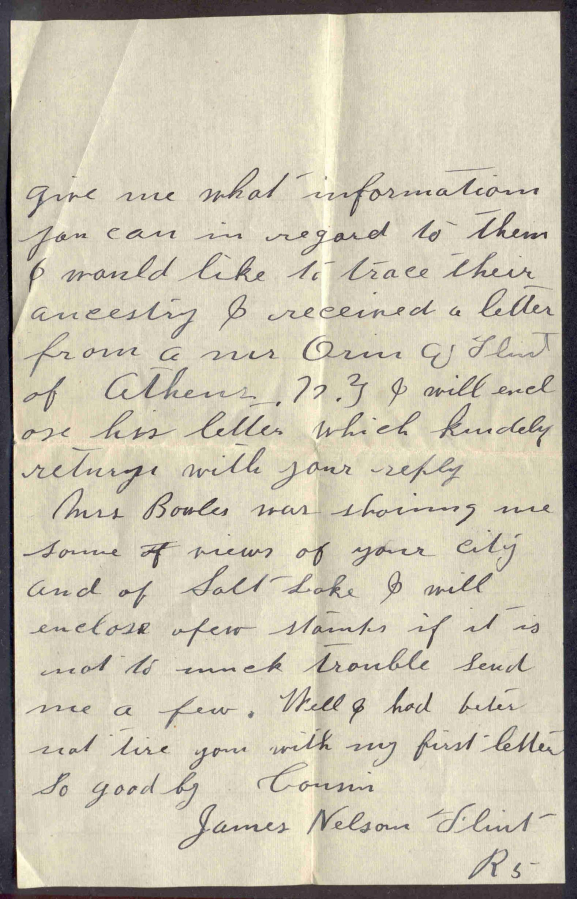 give me what information
you can in regard to them
I would like to trace their
ancestry I received a letter
from a mr Orin G Flint
of Athens, N.Y I will encl
ose his letter which kindely
return with your reply
Mrs Bowles was shoing me
some of views of your city
and of Salt Lake I will
enclose afew stamps if it is
not to much trouble send
me a few. Well I had beter
not tire you with my first letter
So good by Cousin
James Nelson Flint
R 5